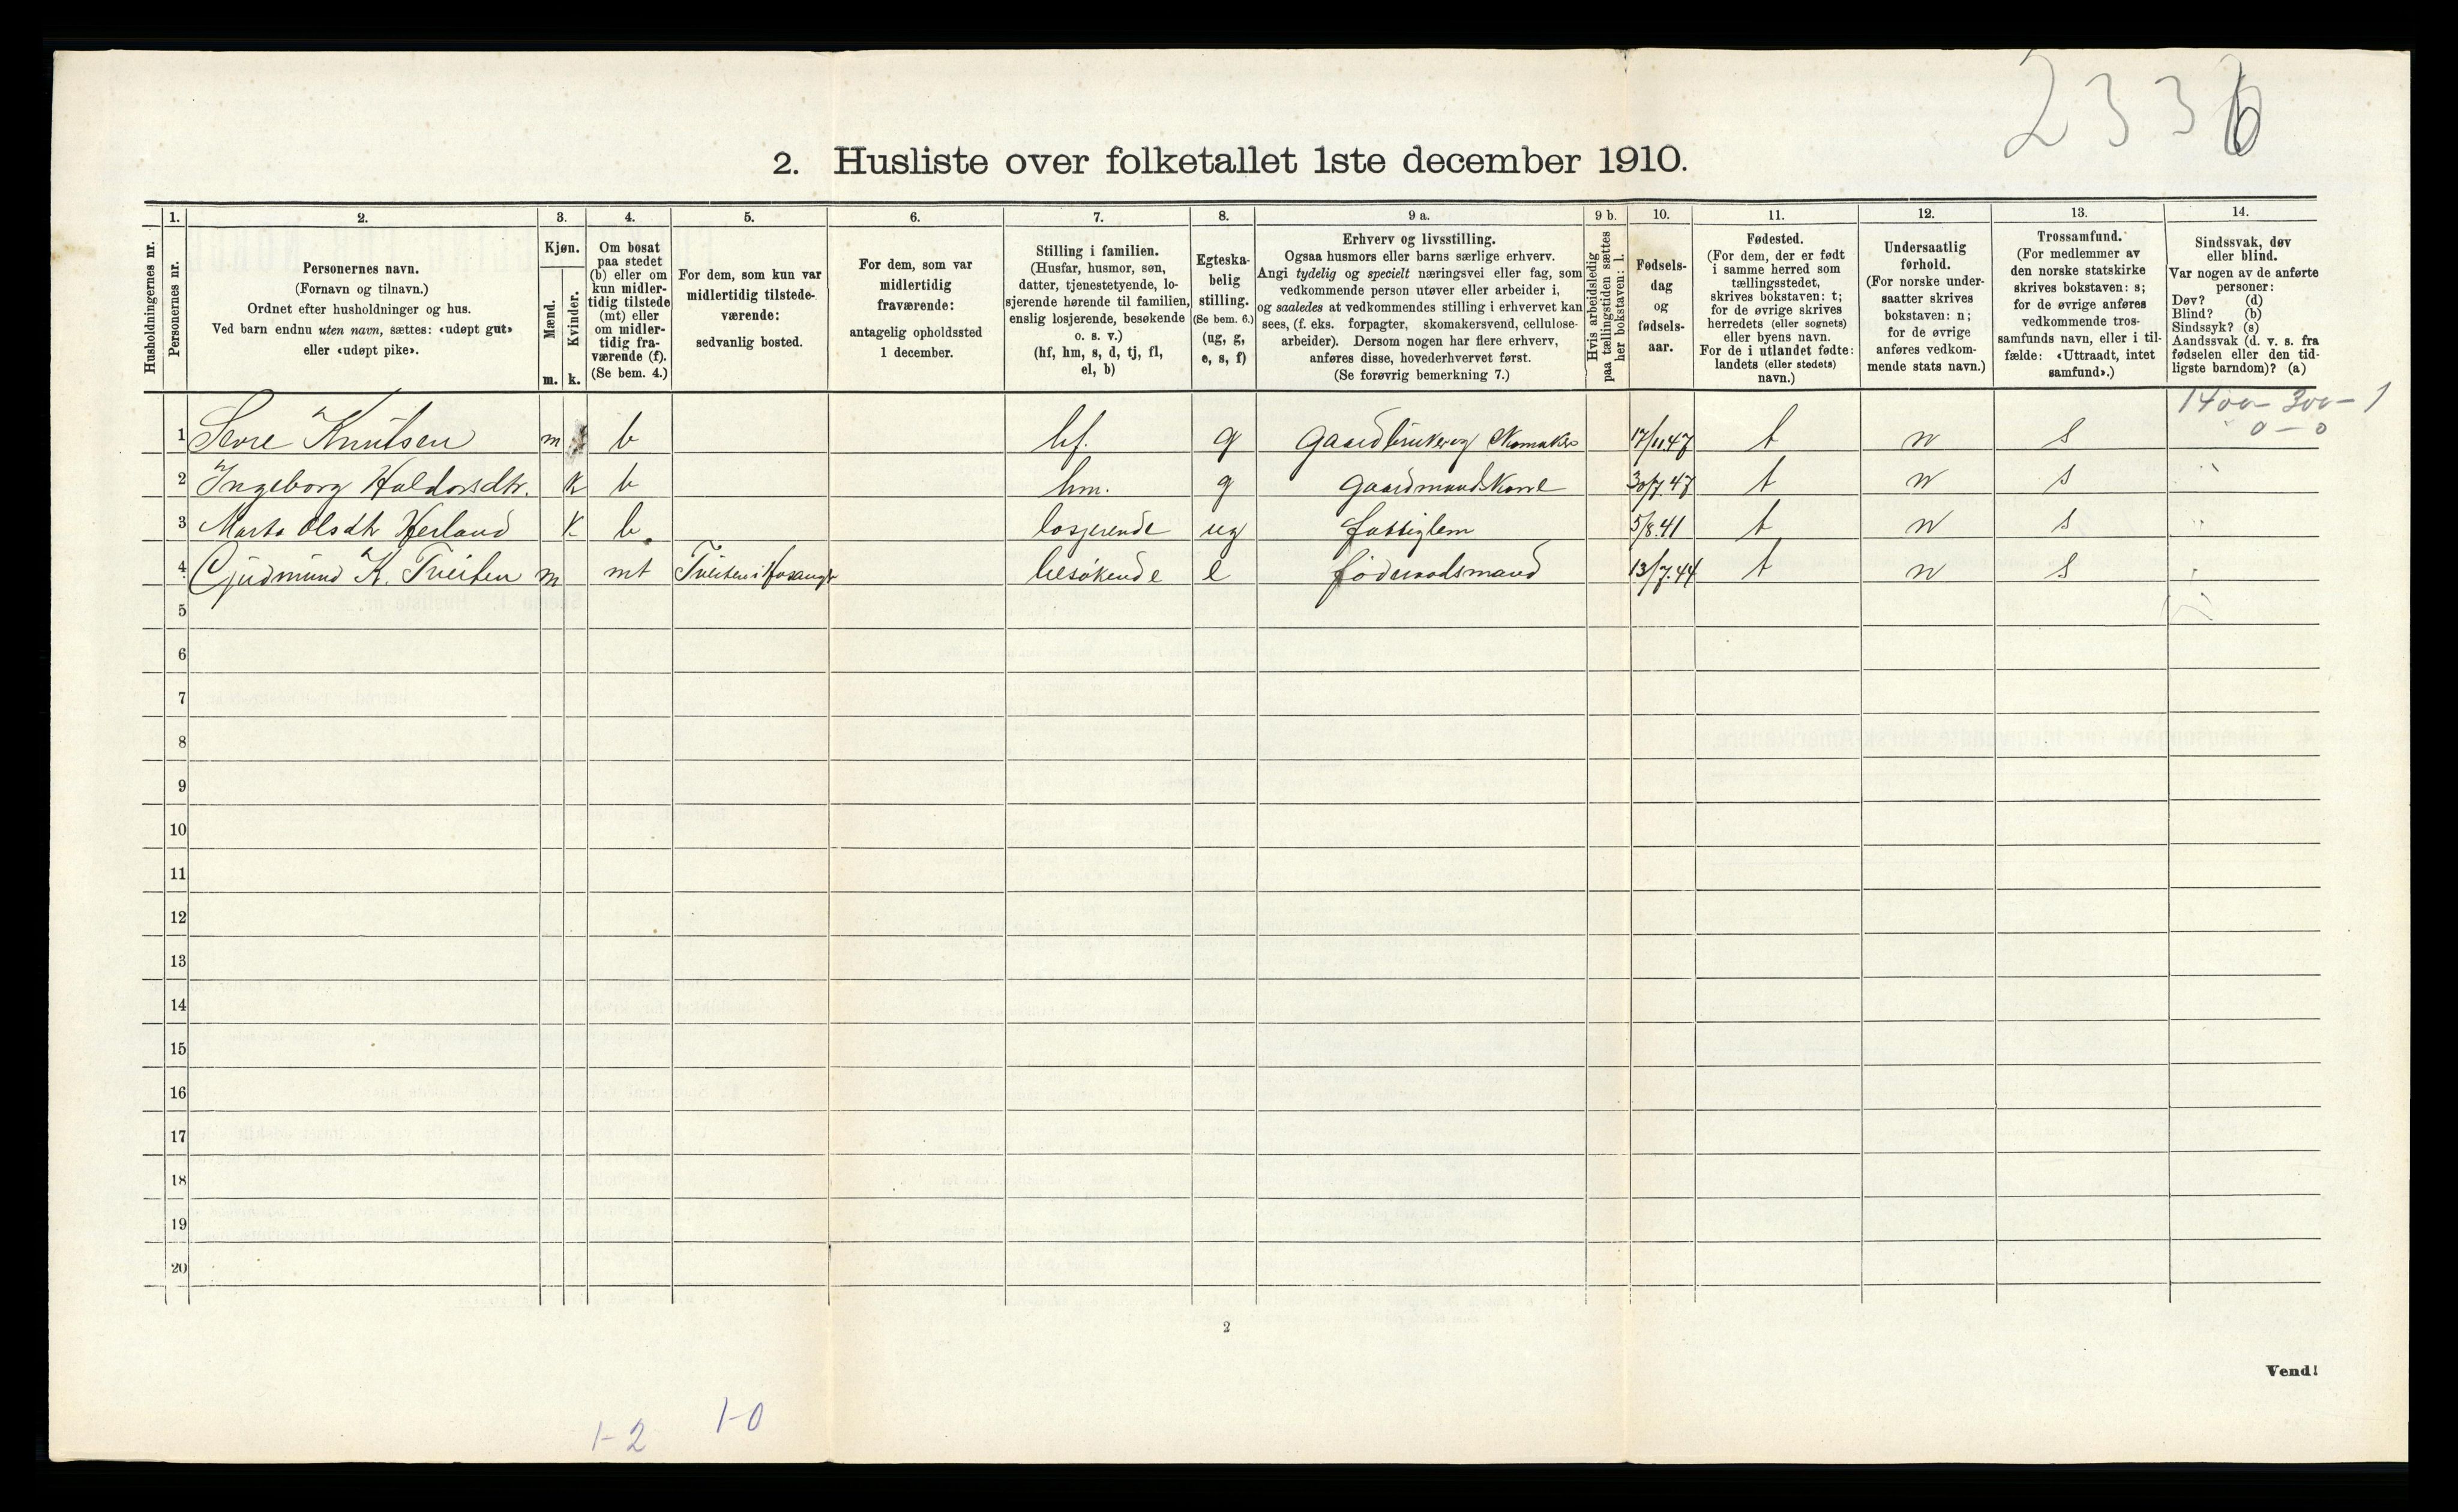 2336
2. Husliste over folketallet 1ste december 1910.
1. 2. 3. 4. 5. 6. 7. 8. 9 a. 9 b. 10. 11. 12. 13. 14.
Husholdningernes nr.
Personernes nr.
Personernes navn.
(Fornavn og tilnavn.)
Ordnet efter husholdninger og hus.
Ved barn endnu uten navn, sættes: «udøpt gut»
eller «udøpt pike».
Kjøn.
Mænd.
Kvinder.
m. k.
Om bosat
paa stedet
(b) eller om
kun midler-
tidig tilstede
(mt) eller
om midler-
tidig fra-
værende (f).
(Se bem. 4.)
For dem, som kun var
midlertidig tilstede-
værende:
sedvanlig bosted.
For dem, som var
midlertidig
fraværende:
antagelig opholdssted
1 december.
Stilling i familien.
(Husfar, husmor, søn,
datter, tjenestetyende, lo-
sjerende hørende til familien,
enslig losjerende, besøkende
o. s. v.)
(hf, hm, s, d, tj, fl,
el, b)
Egteska-
belig
stilling.
(Se bem. 6.)
(ug, g,
e, s, f)
Erhverv og livsstilling.
Ogsaa husmors eller barns særlige erhverv.
Angi tydelig og specielt næringsvei eller fag, som
vedkommende person utøver eller arbeider i,
og saaledes at vedkommendes stilling i erhvervet kan
sees, (f. eks. forpagter, skomakersvend, cellulose-
arbeider). Dersom nogen har flere erhverv,
anføres disse, hovederhvervet først.
(Se forøvrig bemerkning 7.)
Hvis arbeidsledig
paa tællingstiden sættes
her bokstaven: l.
Fødsels-
dag
og
fødsels-
aar.
Fødested.
(For dem, der er født
i samme herred som
tællingsstedet,
skrives bokstaven: t;
for de øvrige skrives
herredets (eller sognets)
eller byens navn.
For de i utlandet fødte:
landets (eller stedets)
navn.)
Undersaatlig
forhold.
(For norske under-
saatter skrives
bokstaven: n;
for de øvrige
anføres vedkom-
mende stats navn.)
Trossamfund.
(For medlemmer av
den norske statskirke
skrives bokstaven: s;
for de øvrige anføres
vedkommende tros-
samfunds navn, eller i til-
fælde: «Uttraadt, intet
samfund».)
Sindssvak, døv
eller blind.
Var nogen av de anførte
personer:
Døv? (d)
Blind? (b)
Sindssyk? (s)
Aandssvak (d. v. s. fra
fødselen eller den tid-
ligste barndom)? (a)
1400 - 300 - 1
0 - 0
1 Knutsen m b hf. g Gaardbruker og Skomaker 17/11.47 t n s
2 Ingeborg Haldorsdtr. k b hm. g Gaardmandskone 30/7.47 t n s
3 Marta Olsdtr Herland k b losjerende ug fattiglem 5/8.41 t n s
4 Gjudmund K. Tveiten m mt Tveiten i besøkende e føderaadsmand 13/7.44 t n s
5
6
7
8
9
10
11
12
13
14
15
16
17
18
19
20
2
Vend!
1-2 1-0